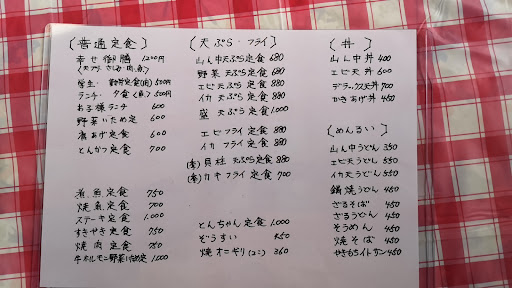 〔普通定食〕
幸せ御膳 1200円
(天プラ・さしみ・肉、魚)
学生 朝井定食(肉) 500円
ランチ・夕食(魚) 500円
お子様ランチ 600
野菜いため定 600
唐あげ定食 600
とんかつ定食 700
煮魚定食 750
焼魚定食 700
ステーキ定食 1.000
すきやき定食 950
焼肉定食 750
牛ホルモン野菜いため定 1.000
〔天ぷら・フライ〕
山ん中天ぷら定食 680
野菜天ぷら定食 680
エビ天ぷら定食 880
イカ天ぷら定食 880
盛天ぷら定食 1.000
エビフライ定食 880
イカフライ定食 880
(季)貝柱天ぷら定食 880
(季)カキフライ定食 700
とんちゃん定食 1.000
ぞうすい 450
焼オニギリ(2コ) 360
〔丼〕
山ん中丼 400
エビ天丼 600
デラックス天丼 700
かきあげ丼 450
〔めんるい〕
山ん中うどん 350
エビ天うどん 550
イカ天うどん 550
鍋焼うどん 450
ざるそば 450
ざるうどん 450
そうめん 450
焼そば 450
やきもち 450